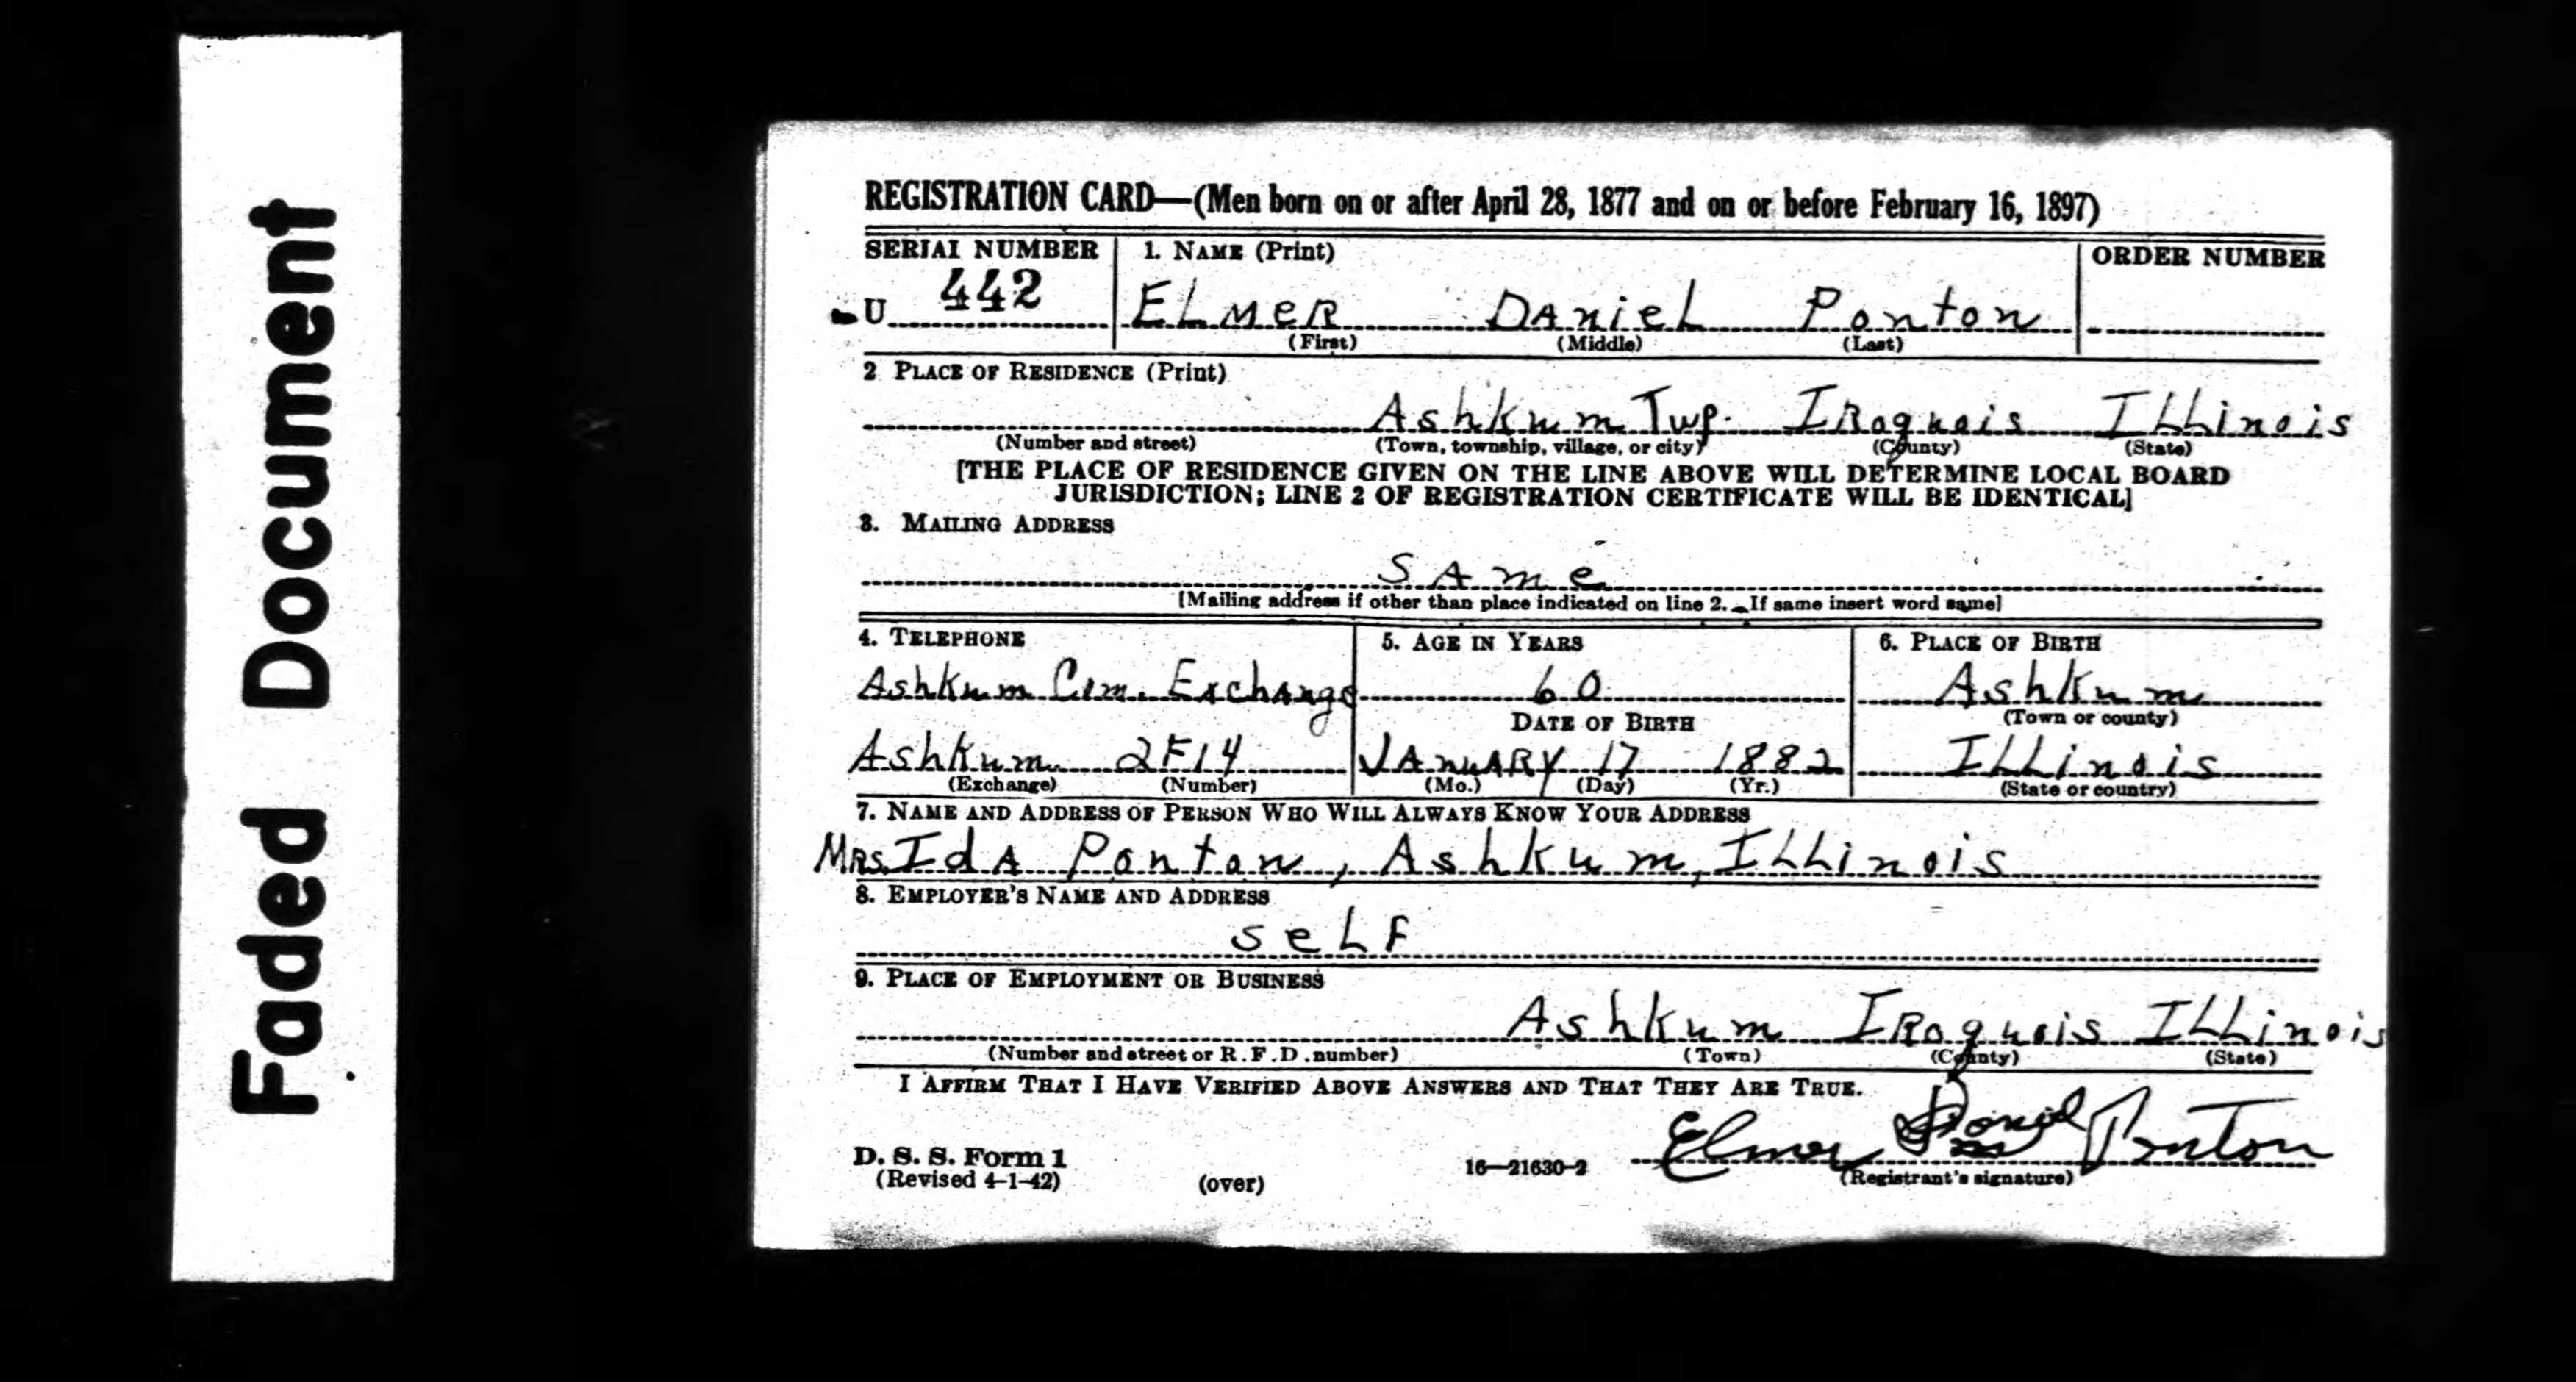 Faded Document
REGISTRATION CARD—(Men born on or after April 28, 1877 and on or before February 16, 1897)
SERIAL NUMBER 1. NAME (Print) ORDER NUMBER
U 442 ELMER DANIEL Ponton
(First) (Middle) (Last)
2 PLACE OF RESIDENCE (Print)
Ashkum Twp. IRoquois ILLinois
(Number and street) (Town, township, village, or city) (County) (State)
[THE PLACE OF RESIDENCE GIVEN ON THE LINE ABOVE WILL DETERMINE LOCAL BOARD
JURISDICTION; LINE 2 OF REGISTRATION CERTIFICATE WILL BE IDENTICAL]
3. MAILING ADDRESS
SAme
[Mailing address if other than place indicated on line 2. If same insert word same]
4. TELEPHONE 5. AGE IN YEARS 6. PLACE OF BIRTH
Ashkum Com. Exchange 60 Ashkum
DATE OF BIRTH (Town or county)
Ashkum 2F14 JANuARY 17 1882 ILLinois
(Exchange) (Number) (Mo.) (Day) (Yr.) (State or country)
7. NAME AND ADDRESS OF PERSON WHO WILL ALWAYS KNOW YOUR ADDRESS
MRS. IdA Ponton, Ashkum, ILLinois
8. EMPLOYER'S NAME AND ADDRESS
seLF
9. PLACE OF EMPLOYMENT OR BUSINESS
Ashkum IRoquois ILLinois
(Number and street or R.F.D. number) (Town) (County) (State)
I AFFIRM THAT I HAVE VERIFIED ABOVE ANSWERS AND THAT THEY ARE TRUE.
D. S. S. Form 1
(Revised 4-1-42) (over) 16—21630-2 Elmer Daniel Ponton
(Registrant's signature)